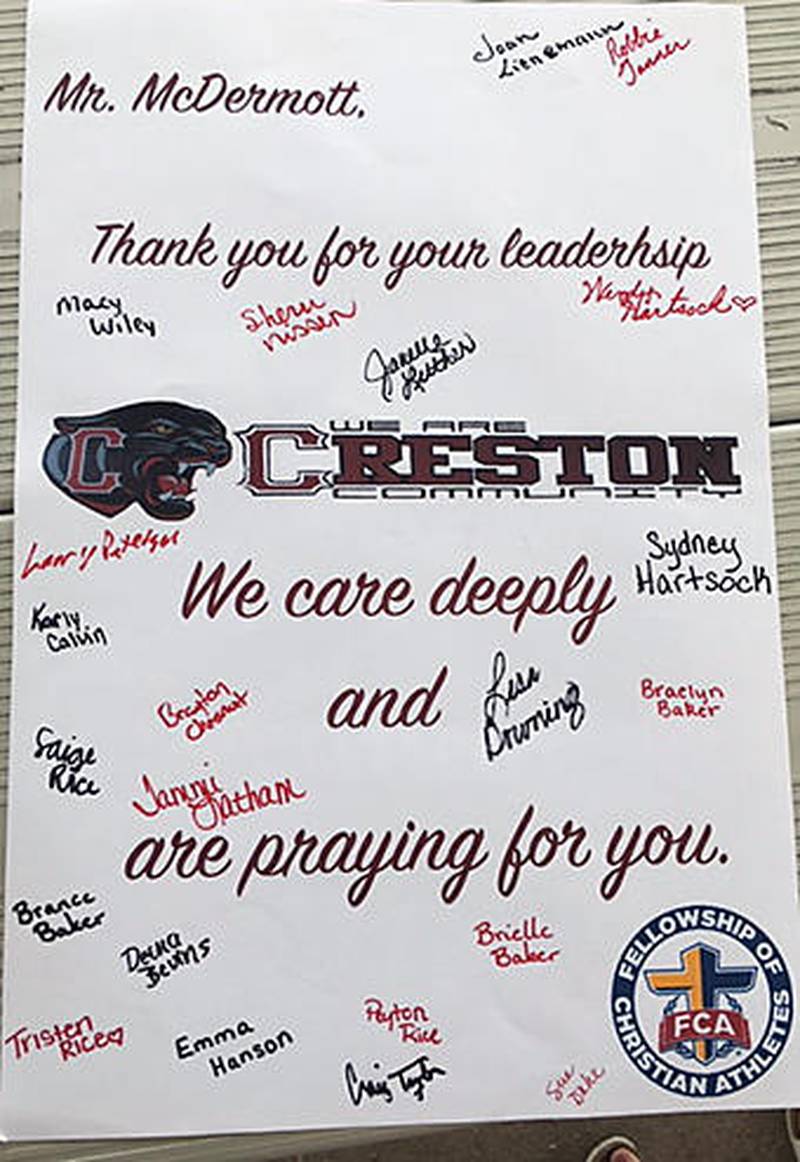 Joan
Lienemann
Robbie
Tanner
Mr. McDermott,
Thank you for your leaderhsip
Macy
Wiley
Sherri
Nissen
Hartsock
Janelle
C
WE ARE
CRESTON
COMMUNITY
Larry Petersen
Sydney
Hartsock
We care deeply
Karly
Calvin
and
Lisa
Downing
Braelyn
Baker
Brayton
Saige
Rice
Tammi
Latham
are praying for you.
Brance
Baker
Bevins
Brielle
Baker
FELLOWSHIP OF
CHRISTIAN ATHLETES
FCA
Tristen
Rice
Emma
Hanson
Payton
Rice
Craig Taylor
Sue
Dake